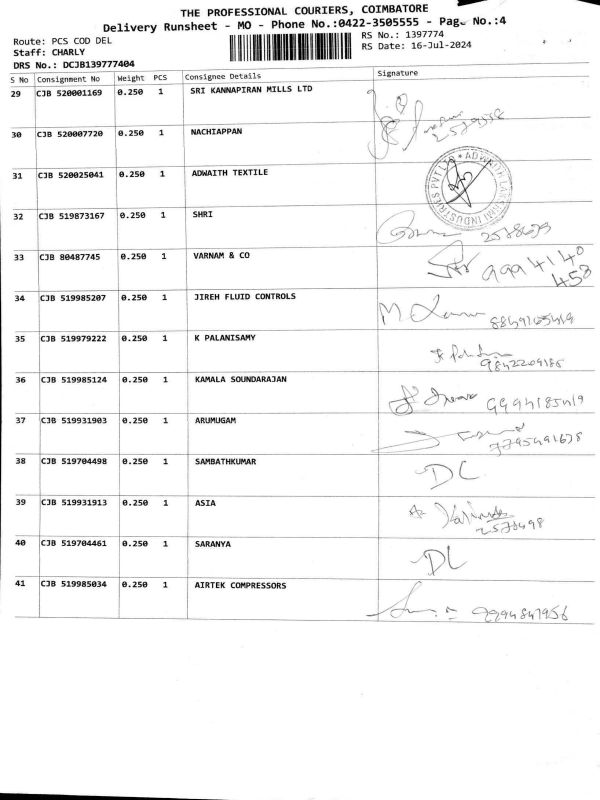 THE PROFESSIONAL COURIERS, COIMBATORE
Delivery Runsheet - MO - Phone No.:0422-3505555 - Page No.:4
Route: PCS COD DEL
RS No.: 1397774
Staff: CHARLY
RS Date: 16-Jul-2024
DRS No.: DCJB139777404
S No Consignment No Weight PCS Consignee Details Signature
29 CJB 520001169 0.250 1 SRI KANNAPIRAN MILLS LTD
30 CJB 520007720 0.250 1 NACHIAPPAN
31 CJB 520025041 0.250 1 ADWAITH TEXTILE
32 CJB 519873167 0.250 1 SHRI
33 CJB 80487745 0.250 1 VARNAM & CO 9994140
453
34 CJB 519985207 0.250 1 JIREH FLUID CONTROLS
35 CJB 519979222 0.250 1 K PALANISAMY
36 CJB 519985124 0.250 1 KAMALA SOUNDARAJAN 9994185419
37 CJB 519931903 0.250 1 ARUMUGAM 7795491678
38 CJB 519704498 0.250 1 SAMBATHKUMAR DL
39 CJB 519931913 0.250 1 ASIA
40 CJB 519704461 0.250 1 SARANYA DL
41 CJB 519985034 0.250 1 AIRTEK COMPRESSORS 9994847956